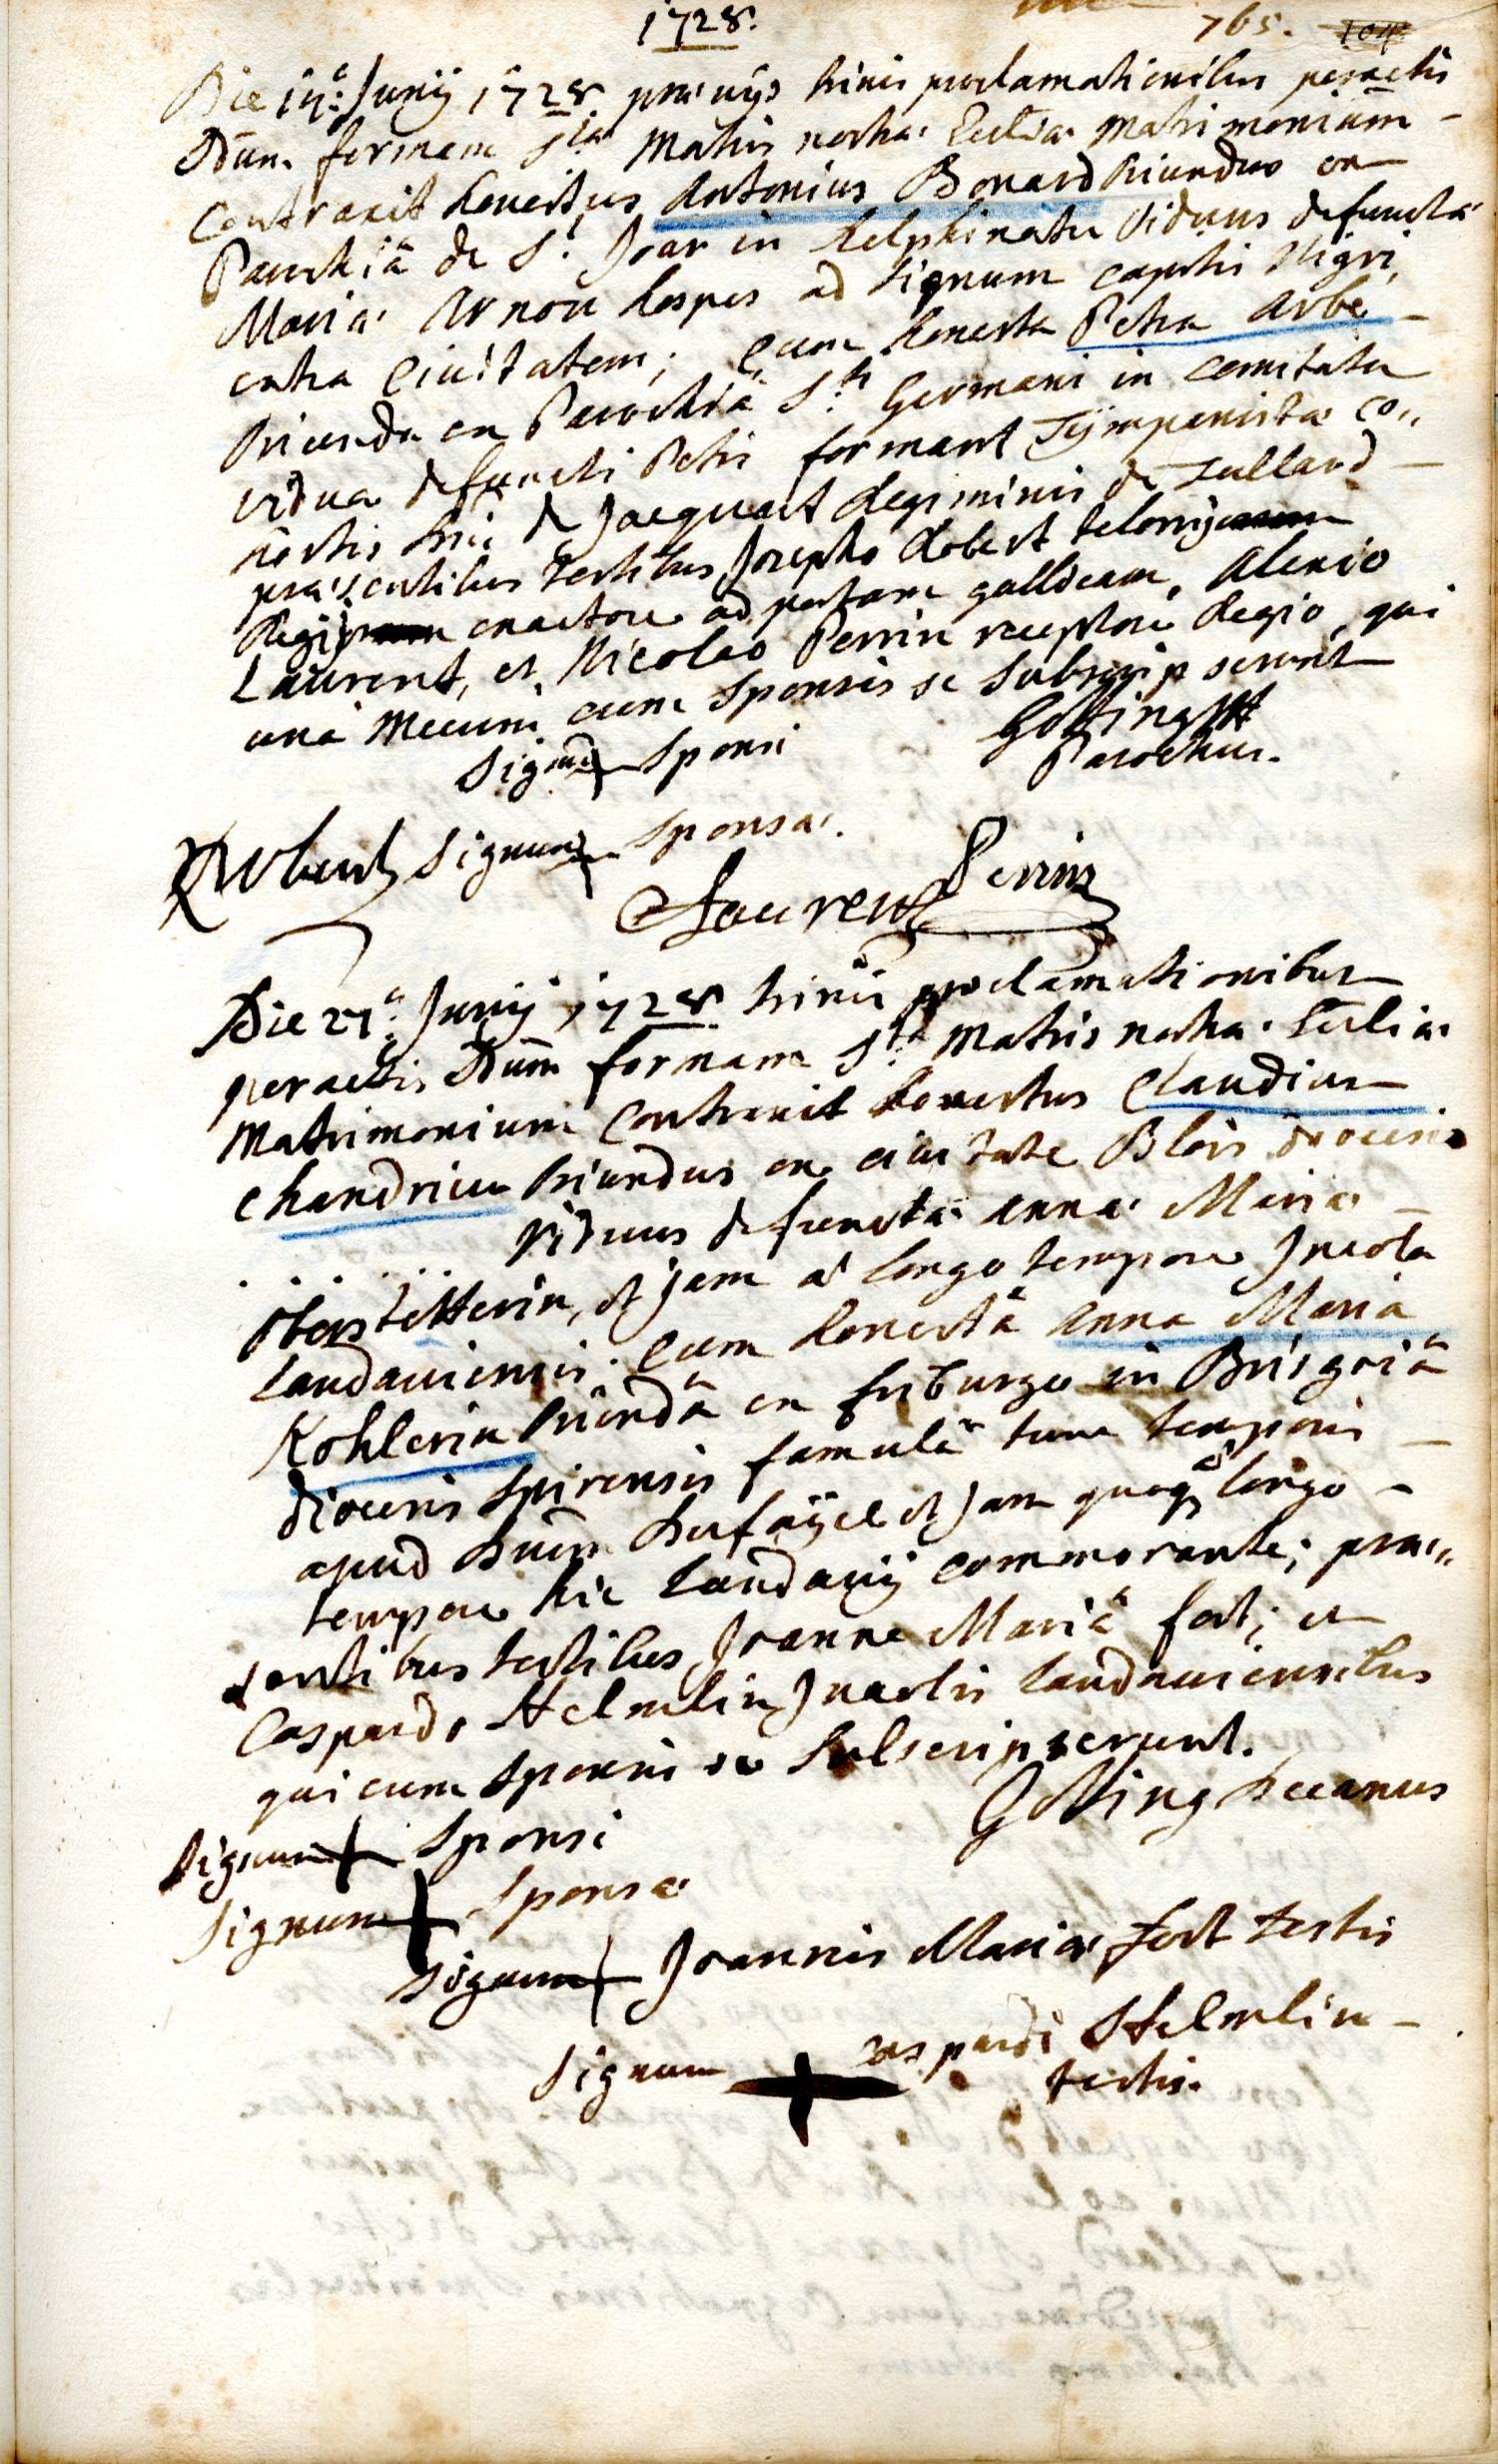 1728.
765. 104
Die 14ᵃ: Junij 1728 præviis trinis proclamationibus peractis
s̄dum formam Sᵗᵃ Matris nostræ Ecclīæ Matrimonium
Contraxit honestus Antonius Bonard oriundus ex
Parochiâ de Sᵗ. Joar in delphinatu viduus defunctæ
Mariæ Arnou hospes ad signum capitis Nigri,
extra Civitatem; Cum honesta Petra Arbe
oriunda ex Parochiâ Sᵗⁱ Germani in comitatu
vidua defuncti Petri formant Tÿmpanistæ co„
hortis dni de Jacquart Regiminis de Tallard
præsentibus testibus Josepho Robert telonij
Regij exactore ad portam gallicam, Alexio
Laurent, et Nicolao Perrin receptore Regio, qui
una Mecum cum sponsis se subscripserunt
Signum + Sponsi
Gotting
Parochus.
Signum + Sponsæ.
Robert
Laurent
Perrin
Die 27ᵃ: Junij 1728 trinis proclamationibus
peractis s̄dum formam Sᵗᵃ Matris nostræ Ecclīæ
Matrimonium Contraxit honestus Claudius
Chandrieu oriundus ex civitate Blois diocesis
. . . . . viduus defunctæ Annæ Mariæ
Oberstetterin, et jam a longo tempore Incola
Landaviensis. Cum honestâ Anna Maria
Kohlerin oriundâ ex friburgo in Brisgoiâ
diocesis Spirensis famulâ tunc temporis
apud dnum dufaÿel et jam quoq̨ a longo
tempore hic Landavij commorante; præ„
sentibus testibus Joanne Mariâ fort; et
Caspardo Helmlin Incolis Landaviensibus
qui cum sponsis se subscripserunt.
Gotting decanus
Signum + Sponsi
Signum + Sponsæ
Signum + Joannis Mariæ fort testis
Signum + Caspardi Helmlin
testis.